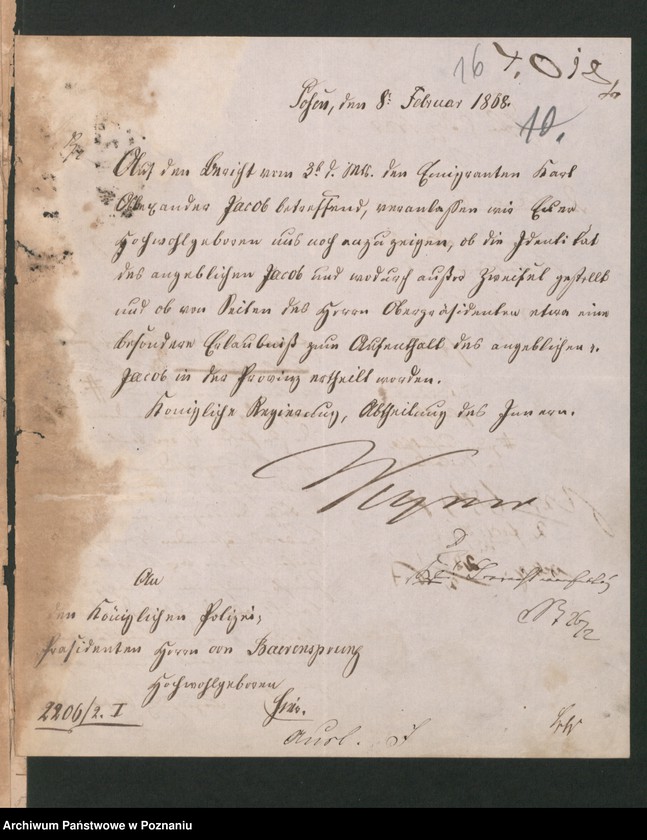 16
10.
Posen, den 8t Februar 1868.
Auf den Bericht vom 3t d. Mts. den Emigranten Karl
Alexander Jacob betreffend, veranlassen wir Euer
Hochwohlgeboren uns noch anzuzeigen, ob die Identität
des angeblichen Jacob und wodurch außer Zweifel gestellt
und ob von Seiten des Herrn Oberpräsidenten etwa eine
besondere Erlaubniß zum Aufenthalt des angeblichen
Jacob in der Provinz ertheilt worden.
Königliche Regierung, Abtheilung des Innern.
An
den Königlichen Polizei-
Präsidenten Herrn von Baerensprung
Hochwohlgeboren
Hier.
2206/2. I
Archiwum Państwowe w Poznaniu